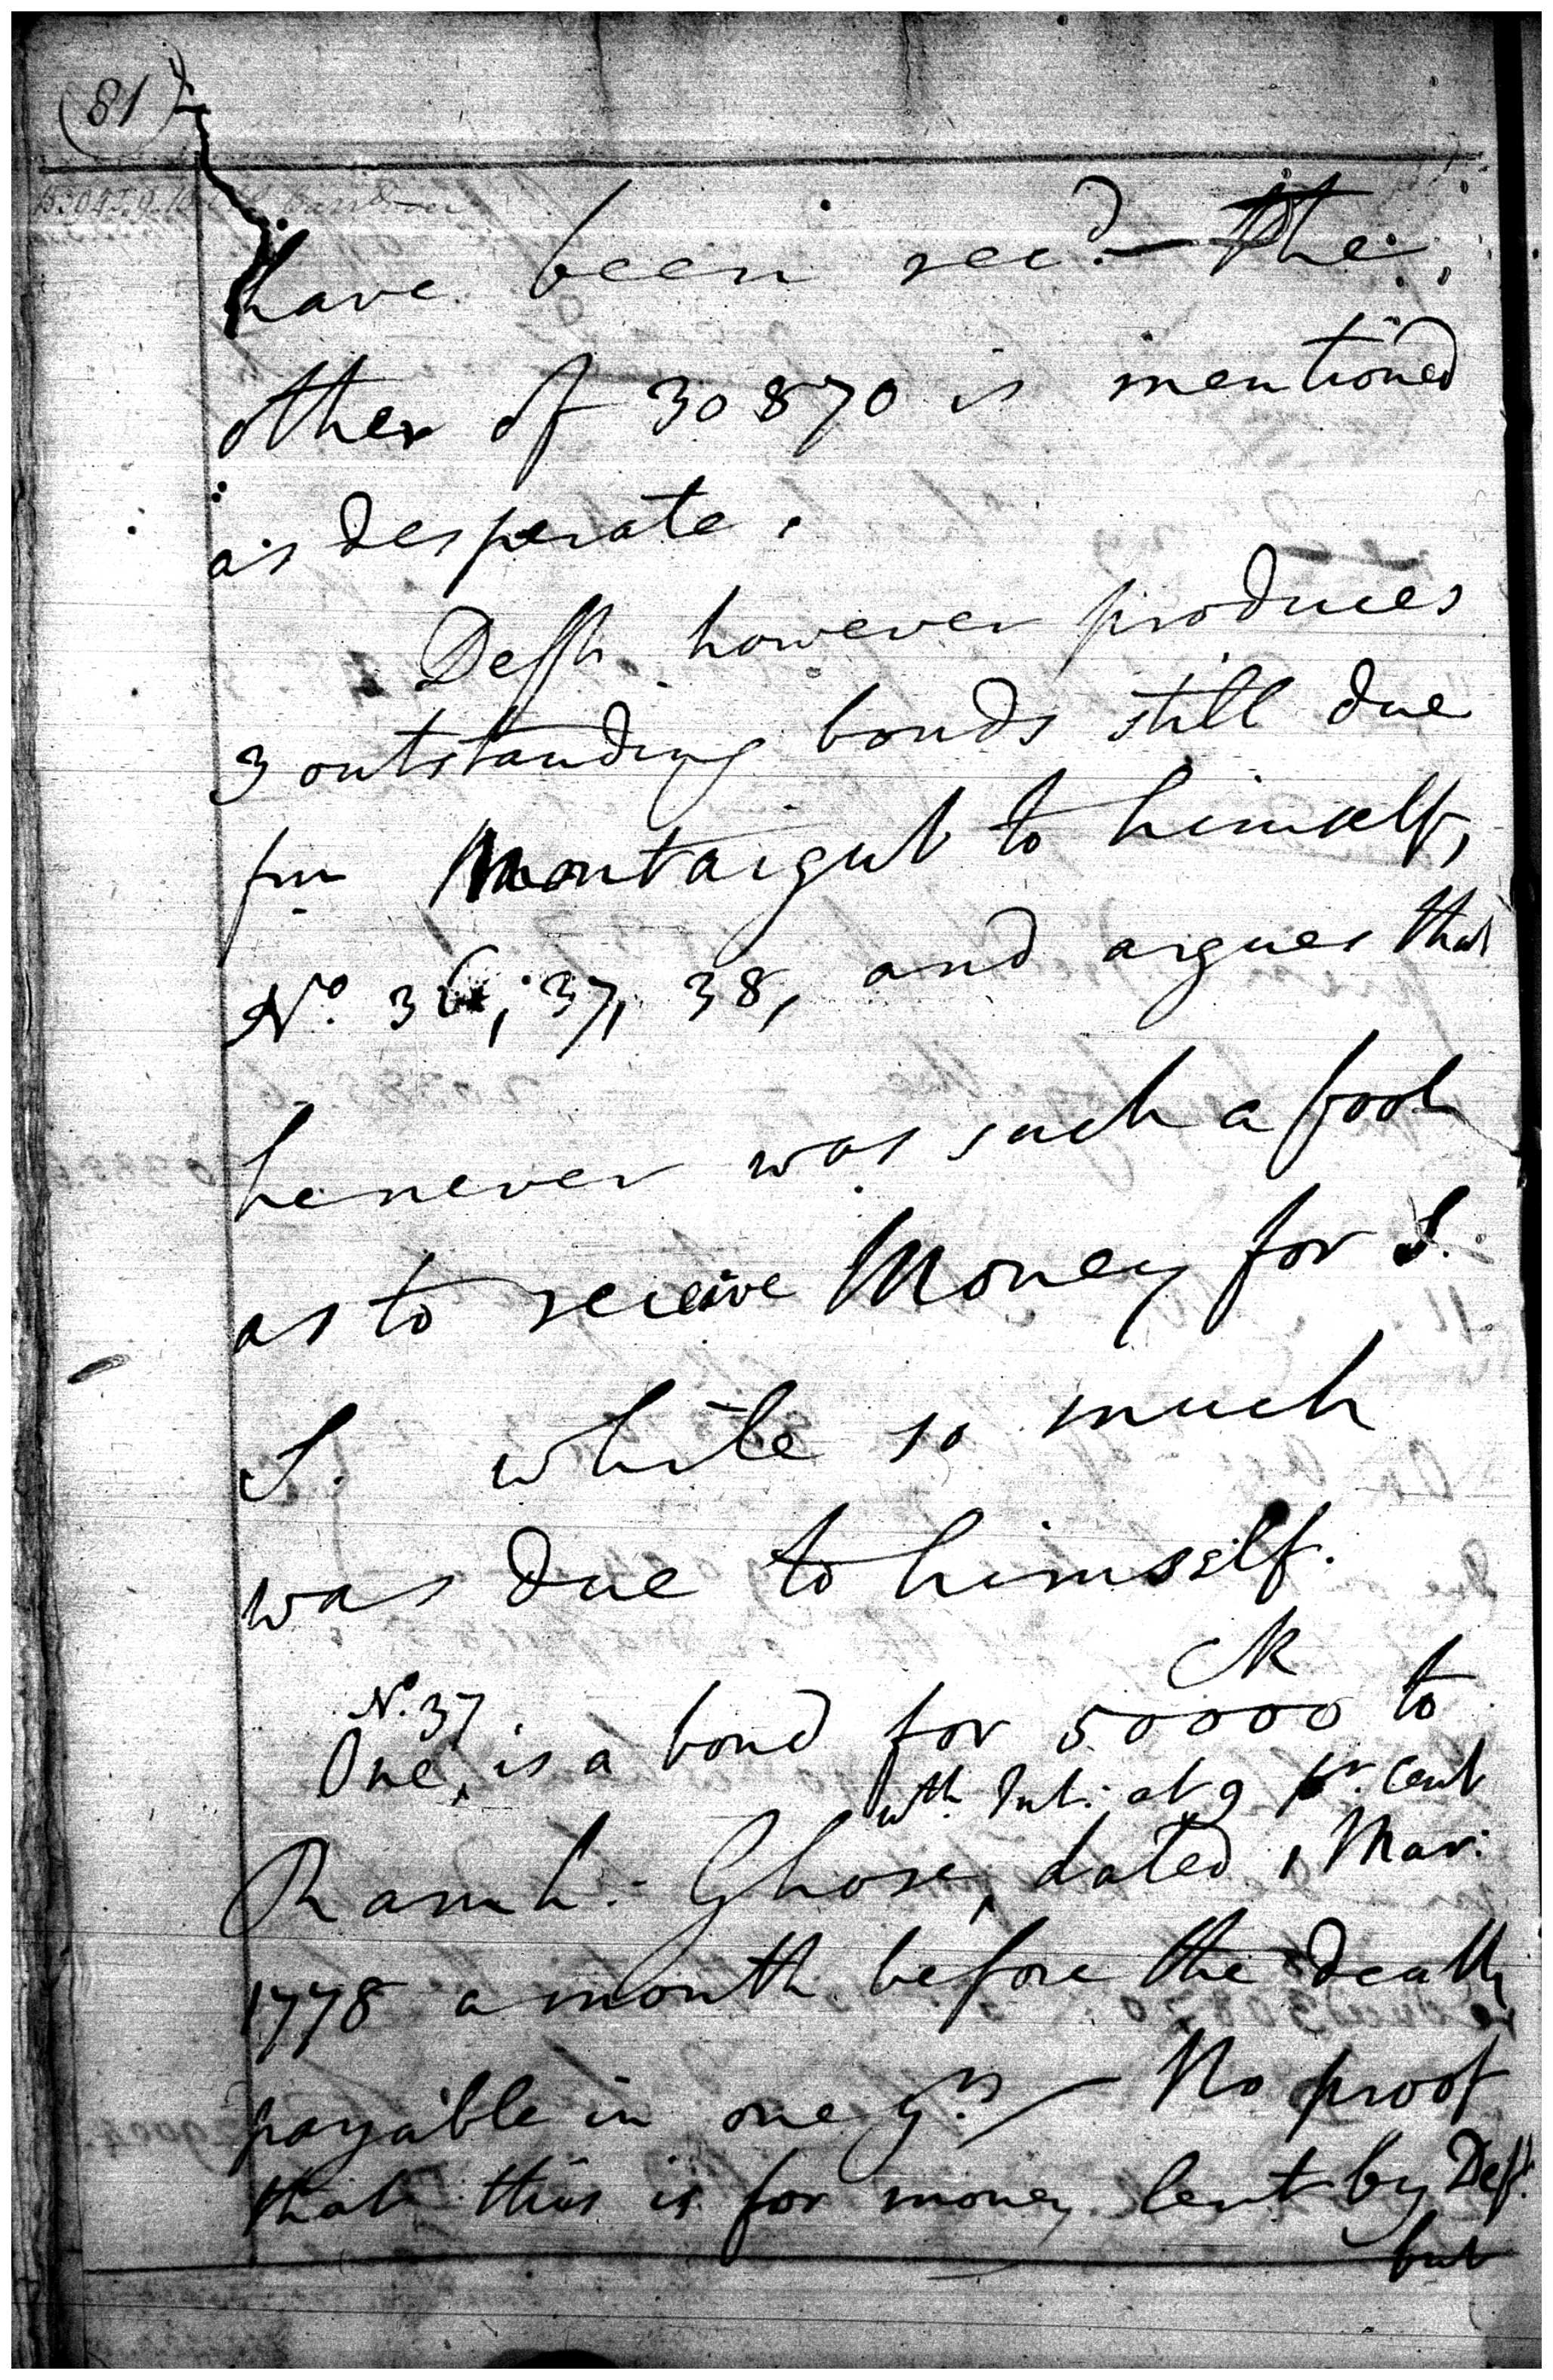 (81)
have been rec.d — the
other of 30870 is mentioned
as desperate.
Deft. however produces
3 outstanding bonds still due
fm Montaigut to himself,
No. 36, 37, 38, and argues that
he never was such a fool
as to receive Money for S.
S. while so much
was due to himself.
CR
No. 37
One, is a bond for 50000 to
wth. Int: at 9 pr. Cent
Ramh: Ghose, dated 1 Mar:
1778 a month before the death
payable in one yr. — No proof
that this is for money lent by Deft.
but